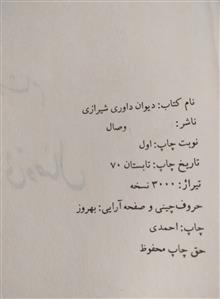 نام کتاب: دیوان داوری شیرازی
ناشر: وصال
نوبت چاپ: اول
تاریخ چاپ: تابستان ۷۰
تیراژ: ۳۰۰۰ نسخه
حروف‌چینی و صفحه آرایی: بهروز
چاپ: احمدی
حق چاپ محفوظ